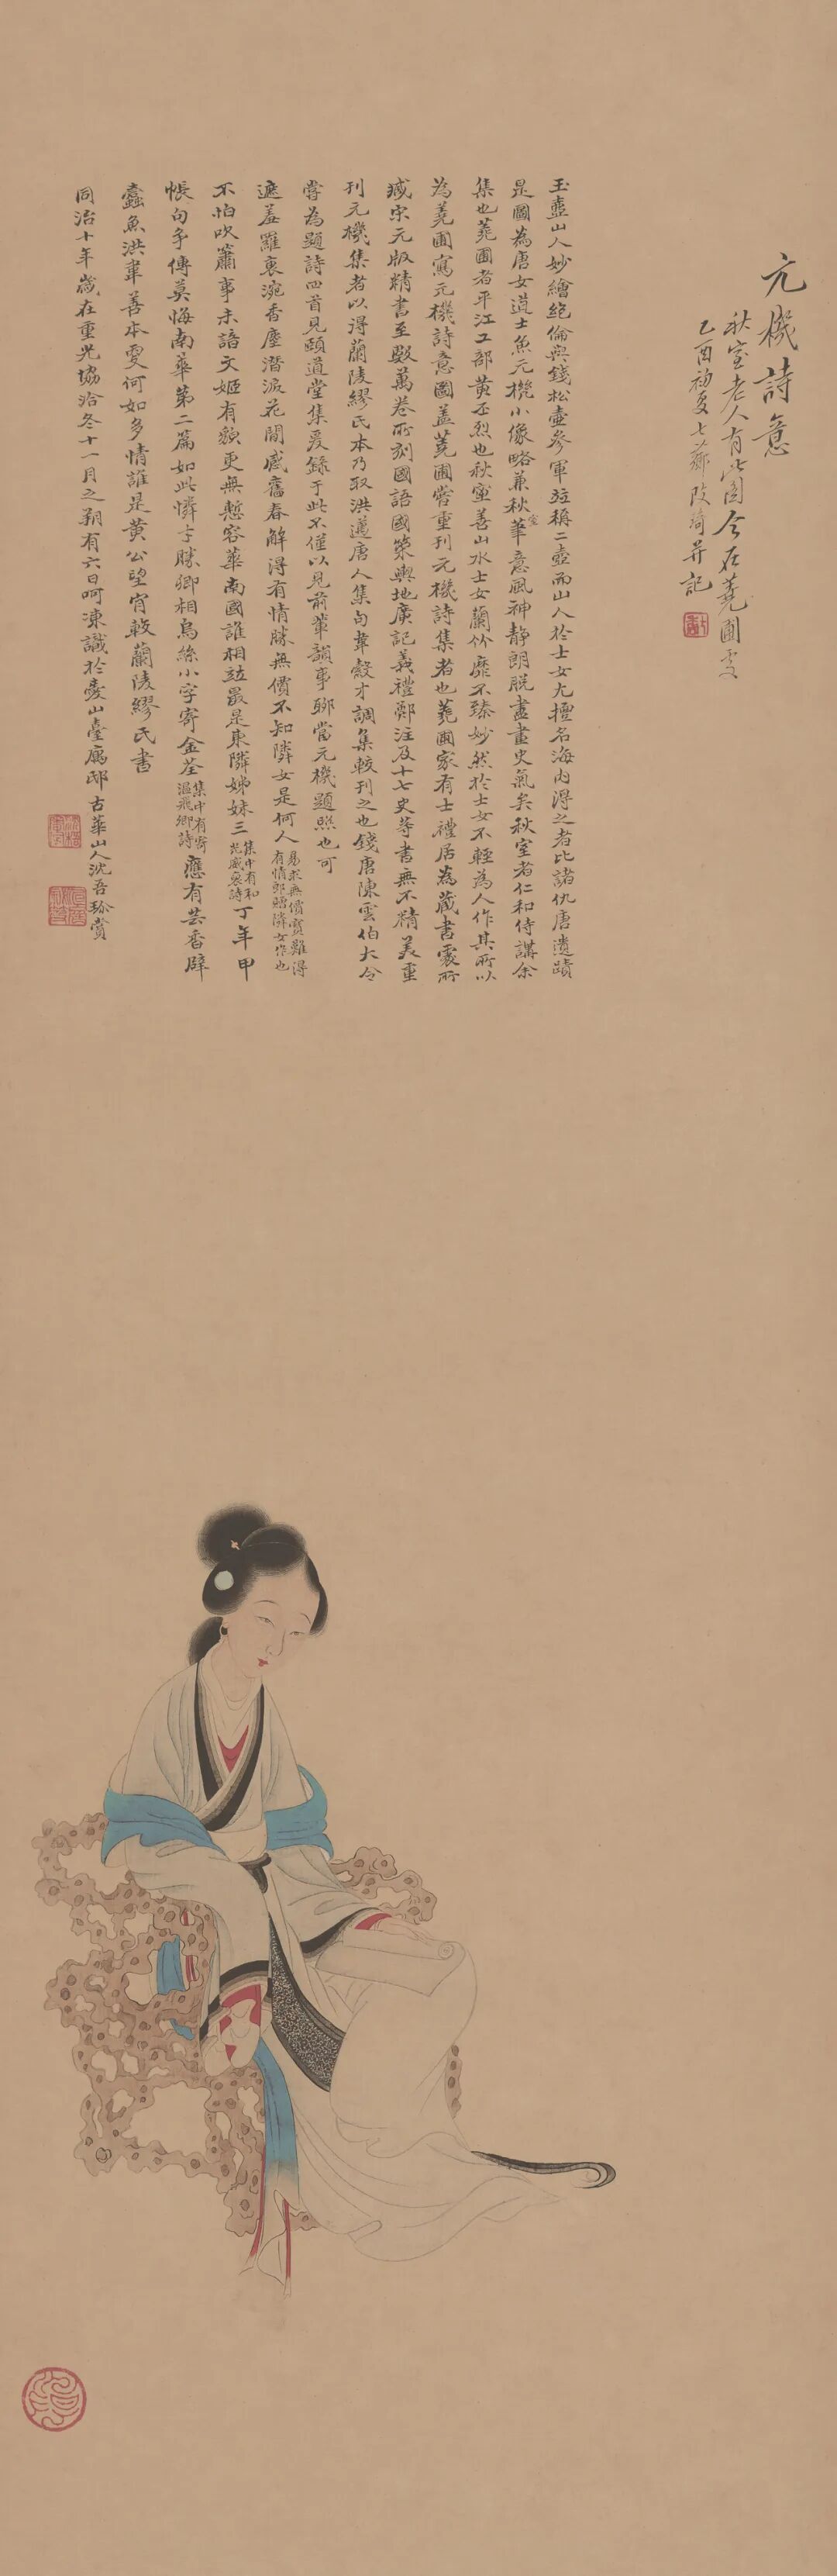 元機詩意
秋室老人有此圖今在蕘圃處
乙酉初夏七薌改琦并記
玉壺山人妙繪絕倫與錢松壺參軍竝稱二壺而山人於士女尤擅名海內得之者比諸仇唐遺蹟
是圖為唐女道士魚元機小像略兼秋室筆意風神靜朗脫盡畫史氣矣秋室者仁和侍講余
集也蕘圃者平江工部黃丕烈也秋室善山水士女蘭竹靡不臻妙然於士女不輕為人作其所以
為蕘圃寫元機詩意圖蓋蕘圃嘗重刊元機詩集者也蕘圃家有士禮居為藏書處所
臧宋元版精書至數萬卷所刻國語國策輿地廣記義禮鄭注及十七史等書無不精美重
刊元機集者以得蘭陵繆氏本乃取洪邁唐人集句韋縠才調集較刊之也錢唐陳雲伯大令
嘗為題詩四首見頤道堂集爰錄于此不僅以見前輩韻事聊當元機題照也可
遮羞羅裏涴香塵潛淚花間感舊春解得有情勝無價不知隣女是何人易求無價寶難得有情郎贈隣女作也
不怕吹簫事未諳文姬有貌更無慙容華南國誰相竝最是東隣姊妹三集中有和光威裒詩丁年甲
帳句爭傳莫悔南華第二篇如此憐才勝卿相烏絲小字寄金荃集中有寄溫飛卿詩應有芸香辟
蠹魚洪韋善本更何如多情誰是黃公望肯較蘭陵繆氏書
同治十年歲在重光協洽冬十一月之朔有六日呵凍識於袁山臺寓邸古華山人沈吾珍賞